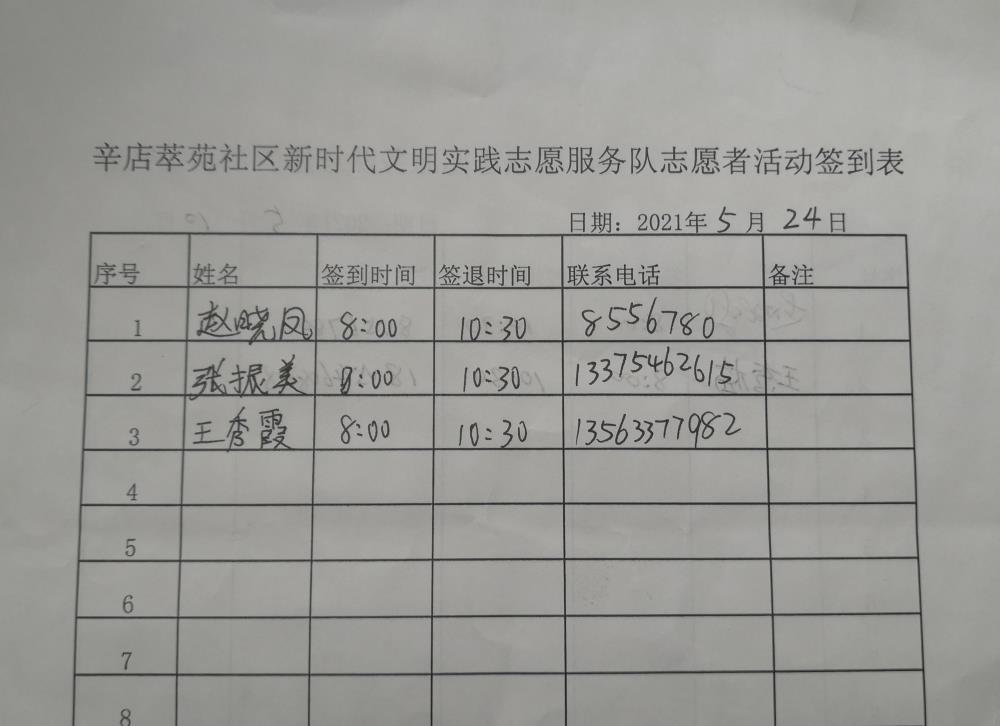 辛店萃苑社区新时代文明实践志愿服务队志愿者活动签到表
日期：2021年 5 月 24 日
序号 姓名 签到时间 签退时间 联系电话 备注
1 赵晓凤 8:00 10:30 8556780
2 张振美 8:00 10:30 13375462615
3 王秀霞 8:00 10:30 13563377982
4
5
6
7
8